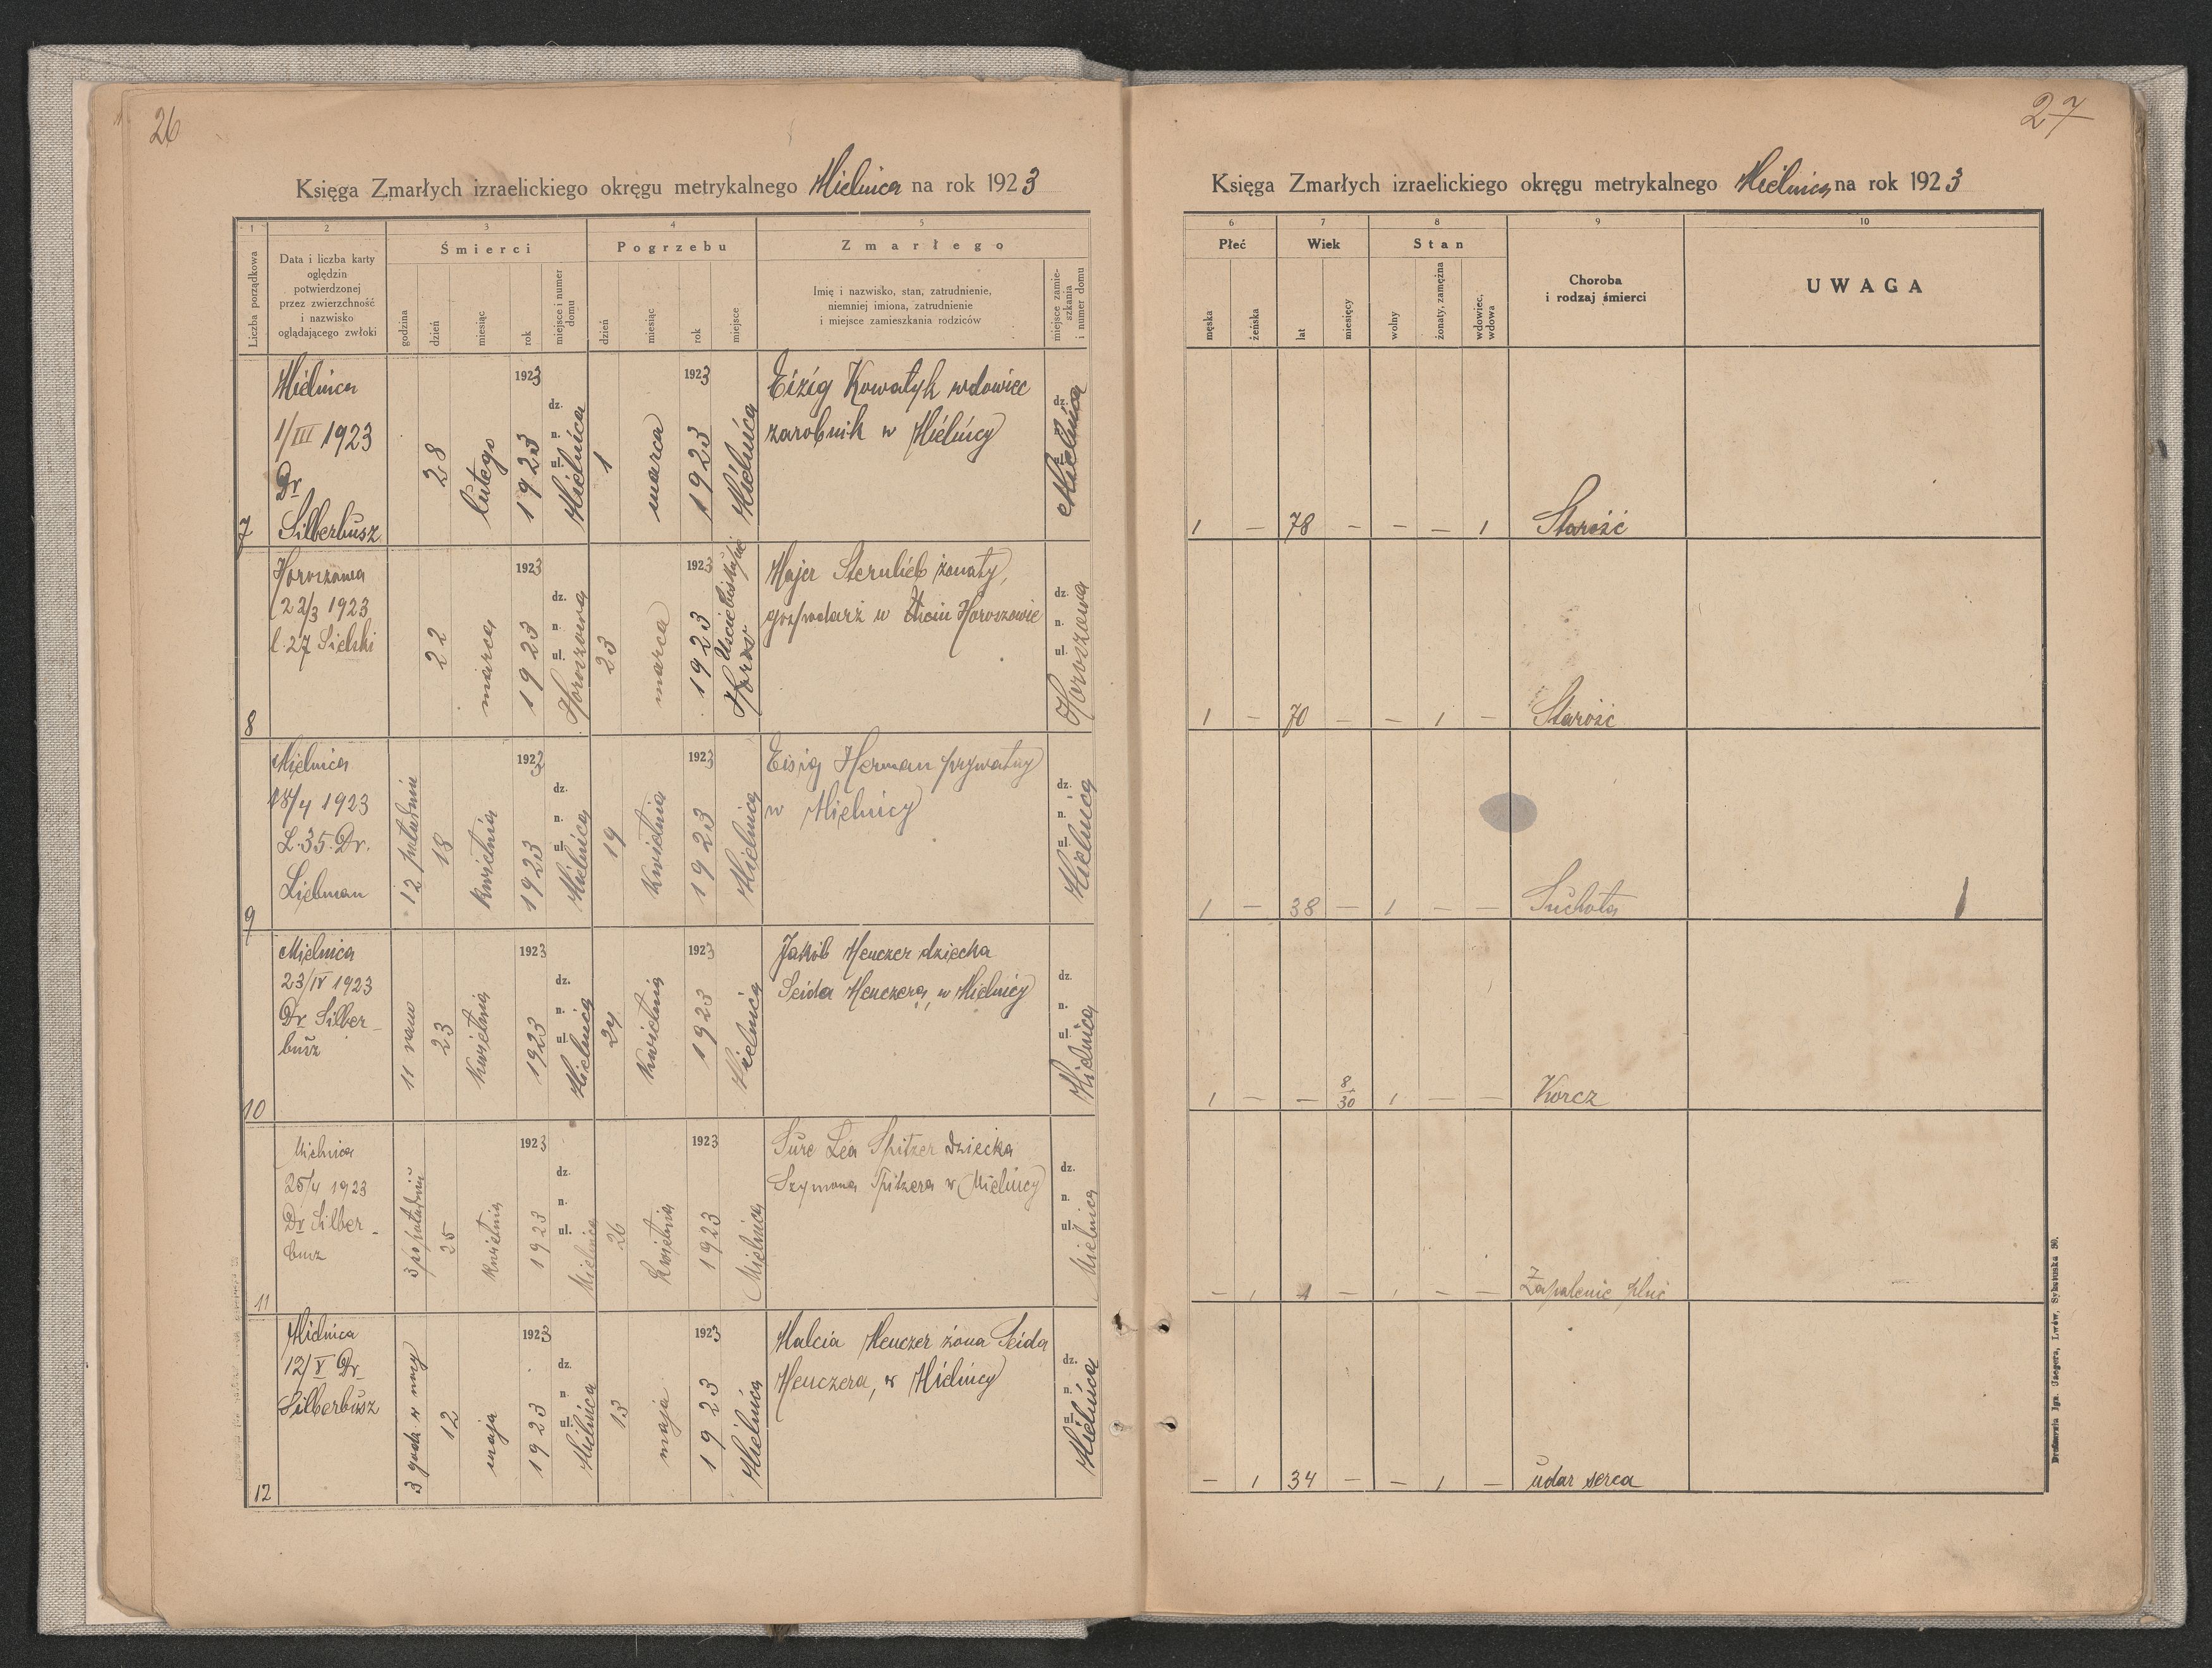 26
Księga Zmarłych izraelickiego okręgu metrykalnego Mielnica na rok 1923
1 2 3 4 5
Liczba porządkowa
Data i liczba karty
oględzin
potwierdzonej
przez zwierzchność
i nazwisko
oglądającego zwłoki
Śmierci
godzina
dzień
miesiąc
rok
miejsce i numer
domu
Pogrzebu
dzień
miesiąc
rok
miejsce
Zmarłego
Imię i nazwisko, stan, zatrudnienie,
niemniej imiona, zatrudnienie
i miejsce zamieszkania rodziców
miejsce zamie-
szkania
i numer domu
7
Mielnica
1/III 1923
Dr
Silberbusz
28
lutego
1923
1923
dz.
n.
ul.
Mielnica
1
marca
1923
1923
Mielnica
Eizig Kowatyk wdowiec
zarobnik w Mielnicy
dz.
n.
ul.
Mielnica
8
Horoszowa
22/3 1923
l. 27 Sielski
22
marca
1923
1923
dz.
n.
ul.
Horoszowa
23
marca
1923
1923
Uscie biskupie
Majer Sternlieb żonaty,
gospodarz w Horoszowie
dz.
n.
ul.
Horoszowa
9
Mielnica
18/4 1923
L. 35. Dr.
Liebman
12 południu
18
kwietnia
1923
1923
dz.
n.
ul.
Mielnica
19
kwietnia
1923
1923
Mielnica
Eisig Herman prywatny
w Mielnicy
dz.
n.
ul.
Mielnica
10
Mielnica
23/IV 1923
Dr Silber-
busz
11 rano
23
kwietnia
1923
1923
dz.
n.
ul.
Mielnica
24
kwietnia
1923
1923
Mielnica
Jakób Menczer dziecka
Seida Menczera, w Mielnicy
dz.
n.
ul.
Mielnica
11
Mielnica
25/4 1923
Dr Silber-
busz
3 popołudniu
25
kwietnia
1923
1923
dz.
n.
ul.
Mielnica
26
kwietnia
1923
1923
Mielnica
Sure Lea Spitzer dziecka
Szymona Spitzera w Mielnicy
dz.
n.
ul.
Mielnica
12
Mielnica
12/V Dr
Silberbusz
3 godz w nocy
12
maja
1923
1923
dz.
n.
ul.
Mielnica
13
maja
1923
1923
Mielnica
Malcia Menczer żona Seida
Menczera, w Mielnicy
dz.
n.
ul.
Mielnica
27
Księga Zmarłych izraelickiego okręgu metrykalnego Mielnica na rok 1923
6 7 8 9 10
Płeć
męska
żeńska
Wiek
lat
miesięcy
Stan
wolny
żonaty, zamężna
wdowiec,
wdowa
Choroba
i rodzaj śmierci
UWAGA
1 — 78 — — — 1 Starość
1 — 70 — — 1 — Starość
1 — 38 — 1 — — Suchota
1 — — 8/30 1 — — Korcz
— 1 1 — 1 — — Zapalenie płuc
— 1 34 — — 1 — udar serca
Drukarnia Ign. Jaegera, Lwów, Sykstuska 30.